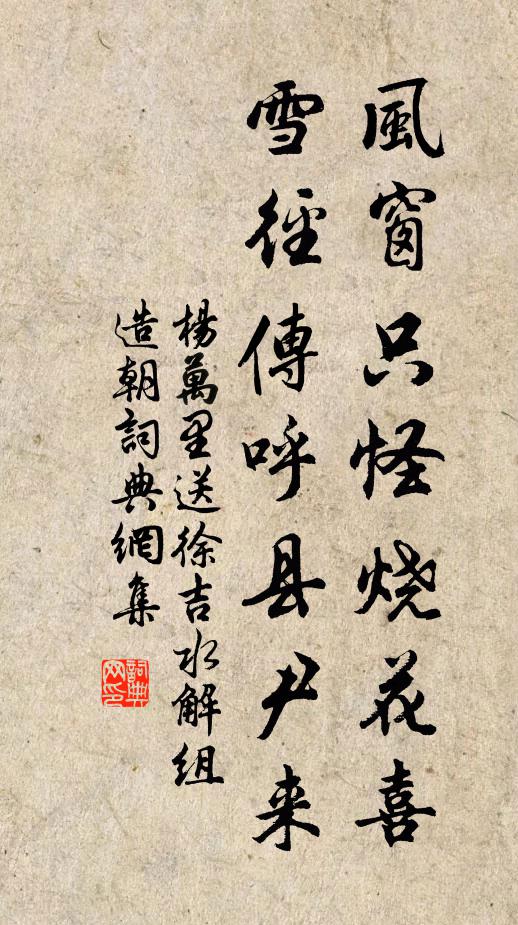 風窗只怪烧花喜
雪徑傳呼县尹来
楊萬里送徐吉水解組
造朝詞典網集
詞典
网印